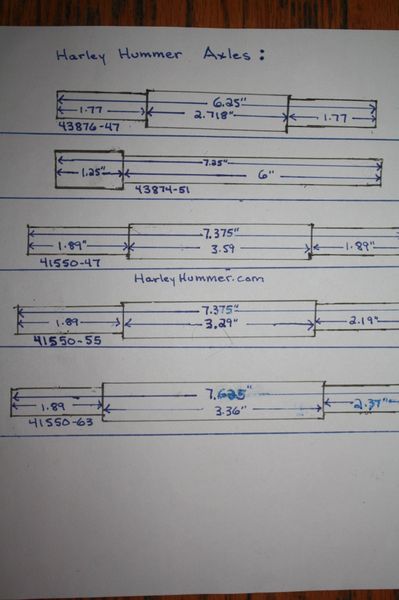 Harley Hummer Axles:
6.25"
1.77 2.718" 1.77
43876-47
7.25"
1.25" 6"
43874-51
7.375"
1.89" 3.59 1.89"
41550-47
HarleyHummer.com
7.375"
1.89 3.29" 2.19"
41550-55
7.625"
1.89 3.36" 2.37"
41550-63